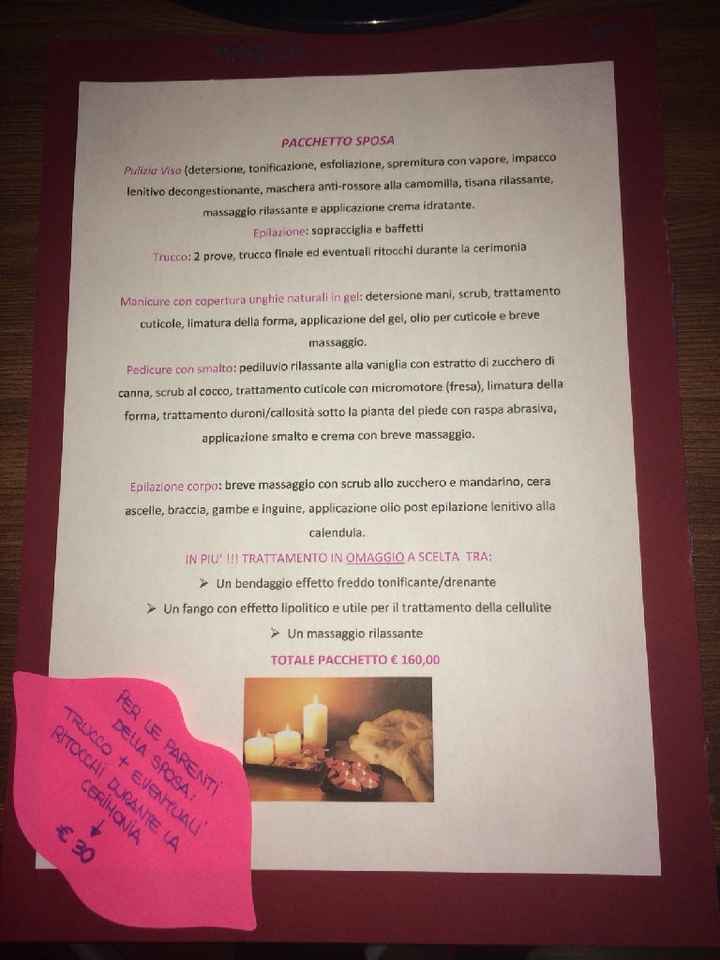 PACCHETTO SPOSA
Pulizia Viso (detersione, tonificazione, esfoliazione, spremitura con vapore, impacco
lenitivo decongestionante, maschera anti-rossore alla camomilla, tisana rilassante,
massaggio rilassante e applicazione crema idratante.
Epilazione: sopracciglia e baffetti
Trucco: 2 prove, trucco finale ed eventuali ritocchi durante la cerimonia
Manicure con copertura unghie naturali in gel: detersione mani, scrub, trattamento
cuticole, limatura della forma, applicazione del gel, olio per cuticole e breve
massaggio.
Pedicure con smalto: pediluvio rilassante alla vaniglia con estratto di zucchero di
canna, scrub al cocco, trattamento cuticole con micromotore (fresa), limatura della
forma, trattamento duroni/callosità sotto la pianta del piede con raspa abrasiva,
applicazione smalto e crema con breve massaggio.
Epilazione corpo: breve massaggio con scrub allo zucchero e mandarino, cera
ascelle, braccia, gambe e inguine, applicazione olio post epilazione lenitivo alla
calendula.
IN PIU' !!! TRATTAMENTO IN OMAGGIO A SCELTA TRA:
➢ Un bendaggio effetto freddo tonificante/drenante
➢ Un fango con effetto lipolitico e utile per il trattamento della cellulite
➢ Un massaggio rilassante
TOTALE PACCHETTO € 160,00
PER LE PARENTI
DELLA SPOSA:
TRUCCO + EVENTUALI
RITOCCHI DURANTE LA
CERIMONIA
↓
€ 30